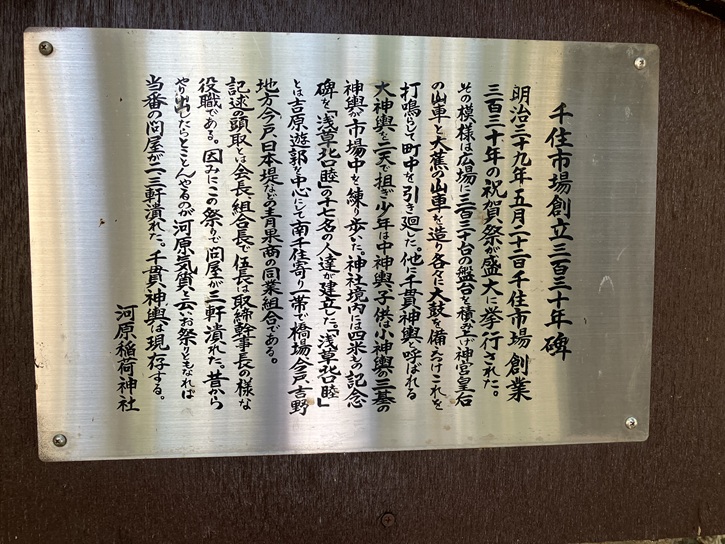 千住市場創立三百三十年碑
明治三十九年五月二十二日千住市場創業
三百三十年の祝賀祭が盛大に挙行された。
その模様は広場に三百三十台の盤台を積み上げ神宮皇后
の山車と大蕪の山車を造り各々に大鼓を備えつけこれを
打鳴らして町中を引き廻した。他に千貫神輿と呼ばれる
大神輿を二天で担ぎ少年は中神輿、子供は小神輿の三基の
神輿が市場中を練り歩いた。神社境内には四米もの記念
碑を「浅草北口睦」の十七名の人達が建立した。「浅草北口睦」
とは吉原遊郭を中心にして南千住寄り一帯で橋場今戸吉野
地方今戸日本堤などの青果商の同業組合である。
記述の頭取とは会長、組合長で伍長は取締幹事長の様な
役職である。因みにこの祭りで問屋が三軒潰れた。昔から
やり出したらとことんやるのが河原気質と云いお祭りともなれば
当番の問屋が二、三軒潰れた。千貫神輿は現存する。
河原稲荷神社